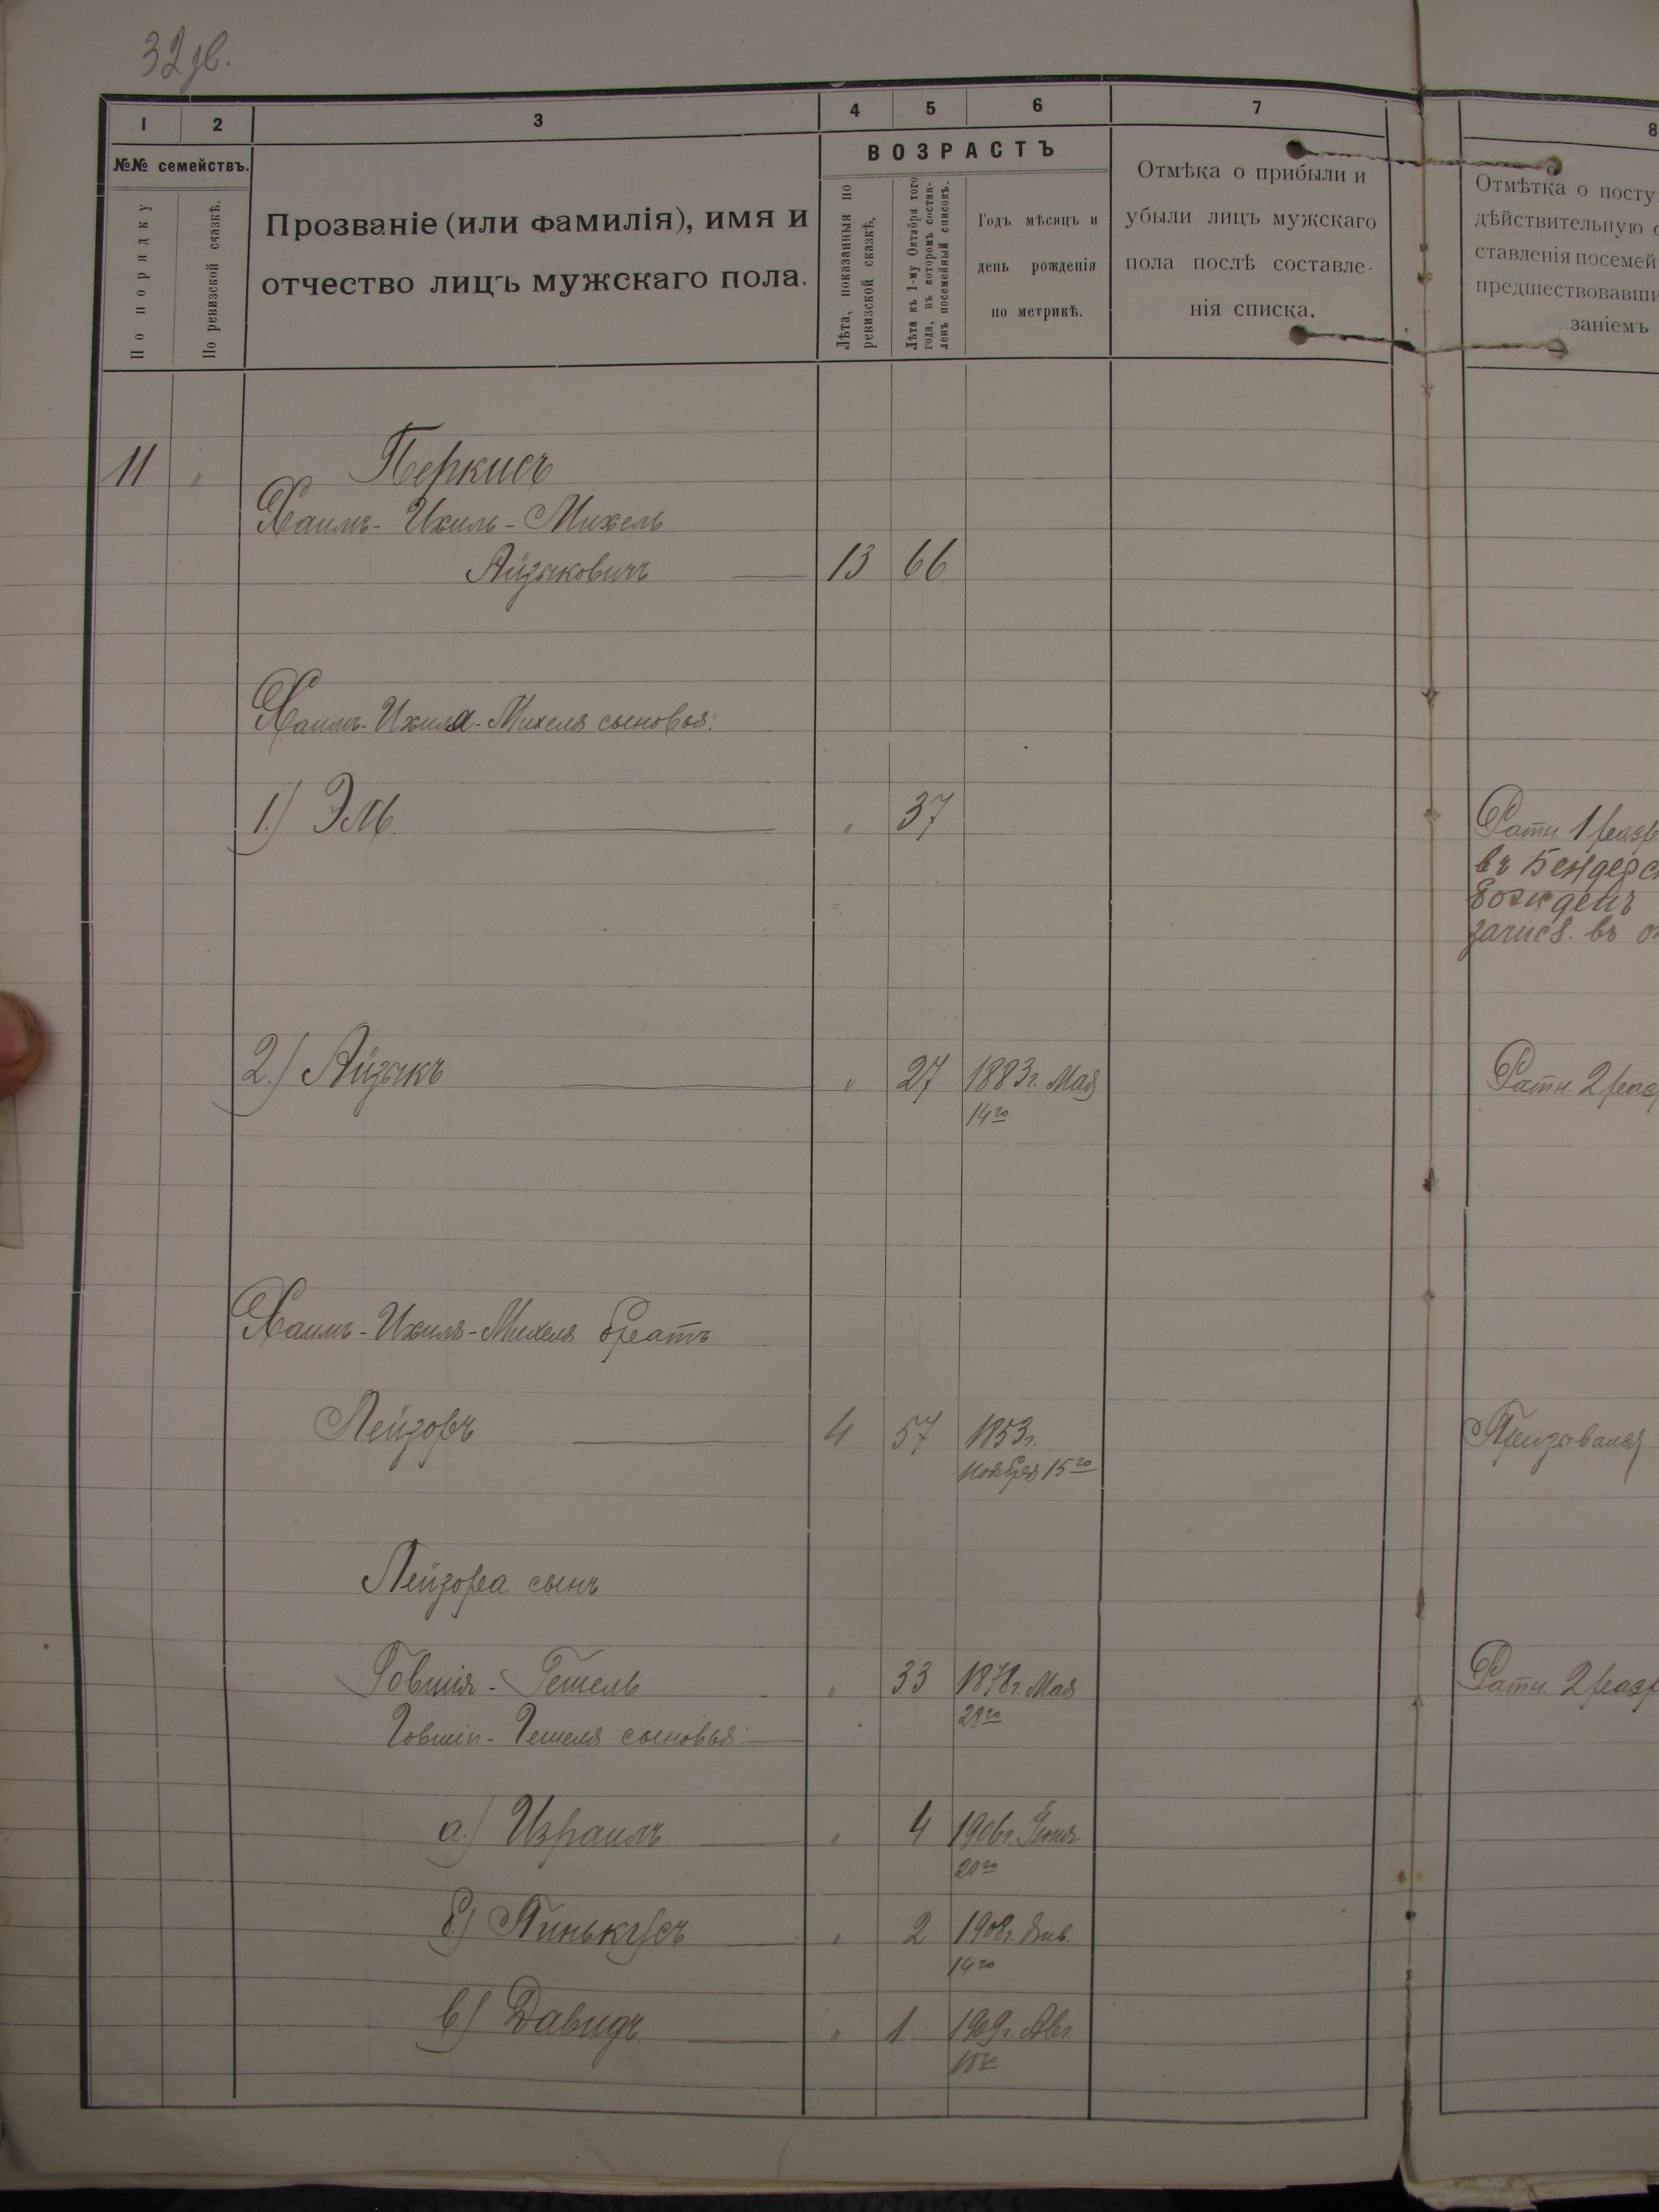 32 зв.
1 2 3 4 5 6 7 8
№№ семействъ.
По порядку
По ревизской сказкѣ.
Прозваніе (или фамилія), имя и
отчество лицъ мужскаго пола.
ВОЗРАСТЪ
Лѣта, показанныя по
ревизской сказкѣ.
Лѣта къ 1-му Октября того
года, въ которомъ состав-
ленъ посемейный списокъ.
Годъ мѣсяцъ и
день рожденія
по метрикѣ.
Отмѣка о прибыли и
убыли лицъ мужскаго
пола послѣ составле-
нія списка.
Отмѣтка о посту
дѣйствительную с
ставленія посемей
предшествовавши
заніемъ
11 " Перкисъ
Хаимъ-Ихиль-Михель
Айзыковичъ 13 66
Хаимъ-Ихиля-Михеля сыновья:
1.) Эль " 37
Ратн. 1 разр
въ Бендерс
зачисл. въ
2.) Айзыкъ " 27 1883 г. Мая
14го
Ратн. 2 разр
Хаимъ-Ихиля-Михеля братъ
Лейзоръ 4 57 1853 г.
Ноября 15го
Призывался
Лейзора сынъ
Говшія-Гешель " 33 1878 г. Мая
28го
Ратн. 2 разр
Говшіи-Гешеля сыновья:
а.) Израиль " 4 1906 г. Іюня
20го
б.) Пинькусъ " 2 1908 г. Янв.
14го
в.) Давидъ " 1 1909 г. Авг.